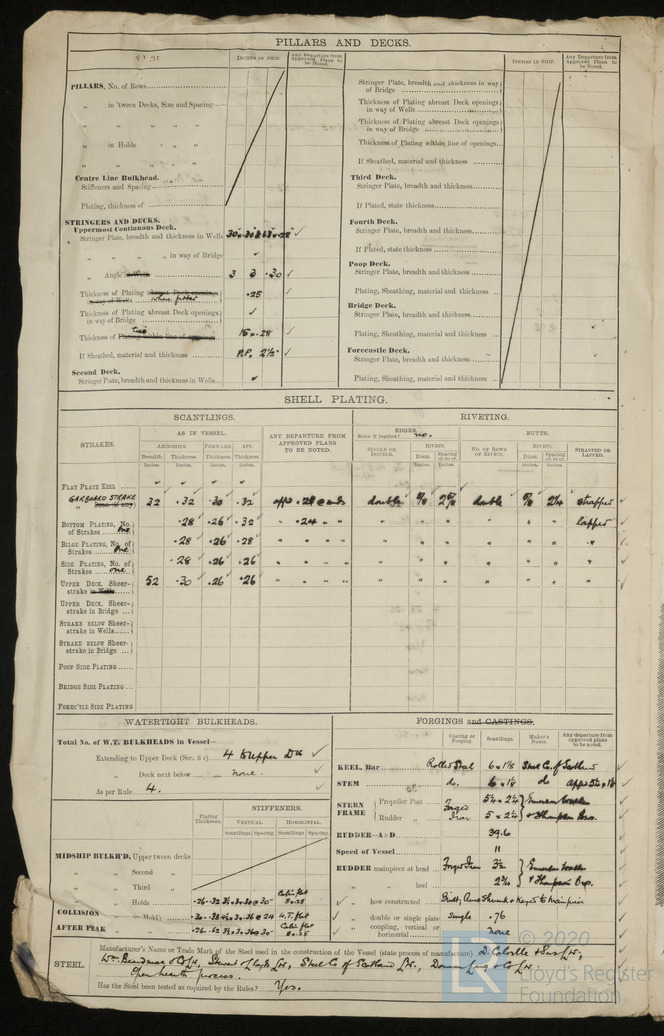 PILLARS AND DECKS.
INCHES IN SHIP.
Any Departure from Approved Plans to be Noted.
PILLARS, No. of Rows
„ in 'tween Decks, Size and Spacing
„ „ „ „ „
„ in Holds „ „
„ „ „ „ „
Centre Line Bulkhead.
Stiffeners and Spacing
Plating, thickness of
STRINGERS AND DECKS.
Uppermost Continuous Deck.
Stringer Plate, breadth and thickness in Wells
„ „ „ „ in way of Bridge ✓
„ Angle in Wells 3 3 .30 ✓
Thickness of Plating abreast Deck openings in way of Wells where fitted .25
Thickness of Plating abreast Deck openings in way of Bridge ✓
Thickness of Plating within line of openings ties 15 x .28 ✓
If Sheathed, material and thickness P.P. 2½" ✓
Second Deck.
Stringer Plate, breadth and thickness in Wells ✓
INCHES IN SHIP.
Any Departure from Approved Plans to be Noted.
Stringer Plate, breadth and thickness in way of Bridge
Thickness of Plating abreast Deck openings in way of Wells
Thickness of Plating abreast Deck openings in way of Bridge
Thickness of Plating within line of openings
If Sheathed, material and thickness
Third Deck.
Stringer Plate, breadth and thickness
If Plated, state thickness
Fourth Deck.
Stringer Plate, breadth and thickness
If Plated, state thickness
Poop Deck.
Stringer Plate, breadth and thickness
Plating, Sheathing, material and thickness
Bridge Deck.
Stringer Plate, breadth and thickness
Plating, Sheathing, material and thickness
Forecastle Deck.
Stringer Plate, breadth and thickness
Plating, Sheathing, material and thickness
SHELL PLATING.
SCANTLINGS. RIVETING.
STRAKES.
AS IN VESSEL.
AMIDSHIPS. FORWARD. AFT.
Breadth. Thickness. Thickness. Thickness.
Inches. Inches. Inches. Inches.
ANY DEPARTURE FROM APPROVED PLANS TO BE NOTED.
EDGES.
State if joggled? no.
SINGLE OR DOUBLE.
RIVETS.
Diam. Spacing cr. to cr.
Inches. Inches.
BUTTS.
NO. OF ROWS OF RIVETS.
RIVETS.
Diam. Spacing cr. to cr.
Inches. Inches.
STRAPPED OR LAPPED.
FLAT PLATE KEEL
GARBOARD STRAKE 32 .32 .30 .32 appd .28 @ ends double 5/8 2 5/8 double 5/8 2¼ strapped
BOTTOM PLATING, No. of Strakes one .28 .26 .32 „ .24 „ „ „ „ „ „ „ „ Lapped
BILGE PLATING, No. of Strakes one .28 .26 .28 „ „ „ „ „ „ „
SIDE PLATING, No. of Strakes one .28 .26 .26 „ „ „ „ „ „ „ „ „ „
UPPER DECK, Sheerstrake in Wells 52 .30 .26 .26 „ „ „ „ „ „ „ „ „ „
UPPER DECK, Sheerstrake in Bridge
STRAKE BELOW Sheerstrake in Wells
STRAKE BELOW Sheerstrake in Bridge
POOP SIDE PLATING
BRIDGE SIDE PLATING
FOREC'TLE SIDE PLATING
WATERTIGHT BULKHEADS.
Total No. of W.T. BULKHEADS in Vessel—
Extending to Upper Deck (Sec. 3 c) 4 to Upper Dk ✓
„ Deck next below none. ✓
As per Rule 4. ✓
Plating Thickness.
STIFFENERS.
VERTICAL. HORIZONTAL.
Scantlings. Spacing. Scantlings. Spacing.
MIDSHIP BULKH'D, Upper tween decks
„ „ Second „
„ „ Third „
„ „ Holds
COLLISION „ (in Hold)
AFTER PEAK „ „
FORGINGS and CASTINGS.
Casting or Forging.
Scantlings.
Maker's Name.
Any departure from approved plans to be noted.
KEEL, Bar Rolled Steel 6 x 1⅛ Steel Co. of Scotland
STEM do. 6 x 1⅛ do appd 5¼ x 1⅛
STERN FRAME
Propeller Post Forged Iron 5¼ x 2¼
Rudder „ 5 x 2¼ & Thompson Bros.
RUDDER—A×D 39.6
Speed of Vessel 11
RUDDER mainpiece at head Forged Iron 3½
„ „ heel 2¾ & Thompson Bros.
„ how constructed Built, Arms Shrunk & Keyed to Mainpiece
„ double or single plate Single .76
„ coupling, vertical or horizontal none
STEEL.
Manufacturer's Name or Trade Mark of the Steel used in the construction of the Vessel (state process of manufacture) D. Colville & Sons Ld.,
Wm. Beardmore & Co Ld, Stewart & Lloyds Ld, Steel Co of Scotland Ld.,
Open hearth process.
Has the Steel been tested as required by the Rules? Yes.
© 2020
LR
Lloyd's Register
Foundation